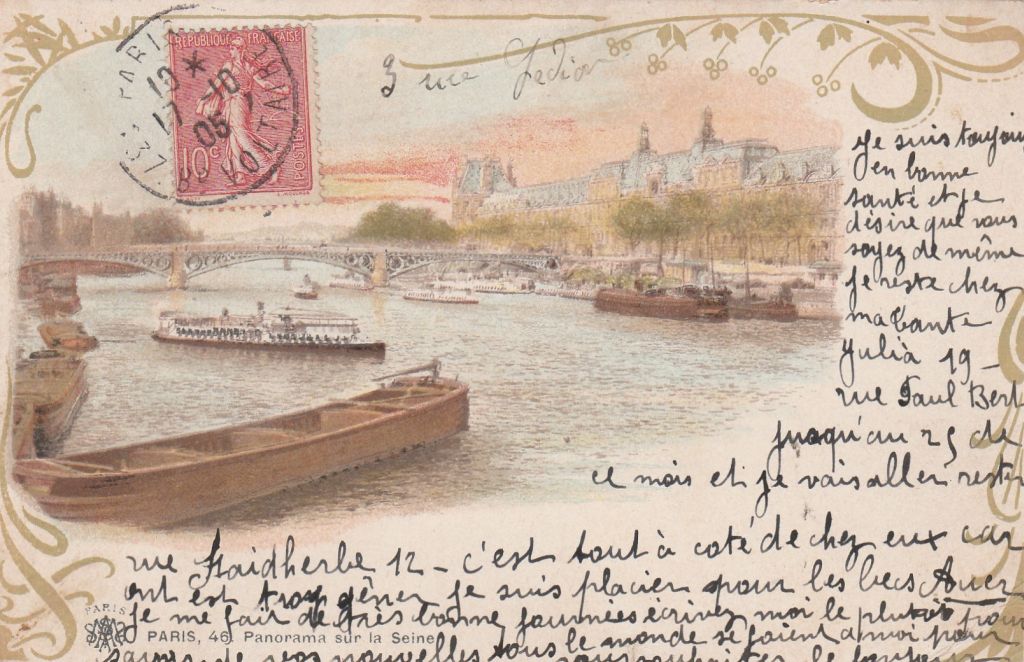 PARIS
RÉPUBLIQUE FRANÇAISE
10 *
17 -10
05
37
VOLTAIRE
10c
POSTES
3 rue
Je suis toujour
en bonne
santé et je
désire que vous
soyez de même
Je reste chez
ma tante
Julià 19 -
rue Paul Bert
jusqu'au 25 de
ce mois et je vais aller reste
rue Faidherbe 12 - c'est tout à coté de chez eux car
ont est trop gêner je suis placier pour les becs Auer
je me fait de très bonne journées écrivez moi le plutot pour
PARIS
PARIS, 46. Panorama sur la Seine
de vos nouvelles tous le monde se joient a moi pour
souhaites le